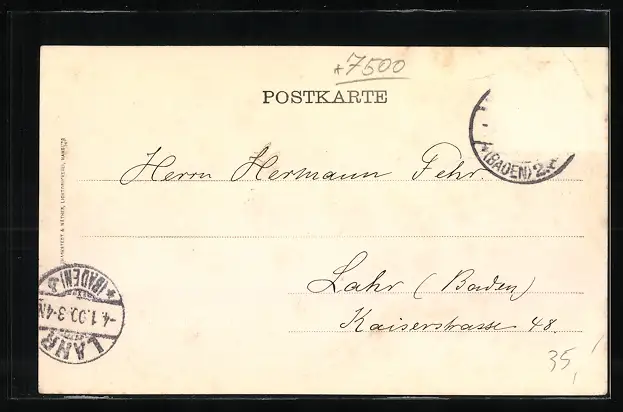 *7500
POSTKARTE
(BADEN) 2.
Herrn Hermann Fehr.
Lahr (Baden)
Kaiserstrasse 48.
35,
* (BADEN) *
4.1.00. 3-4N
LAHR